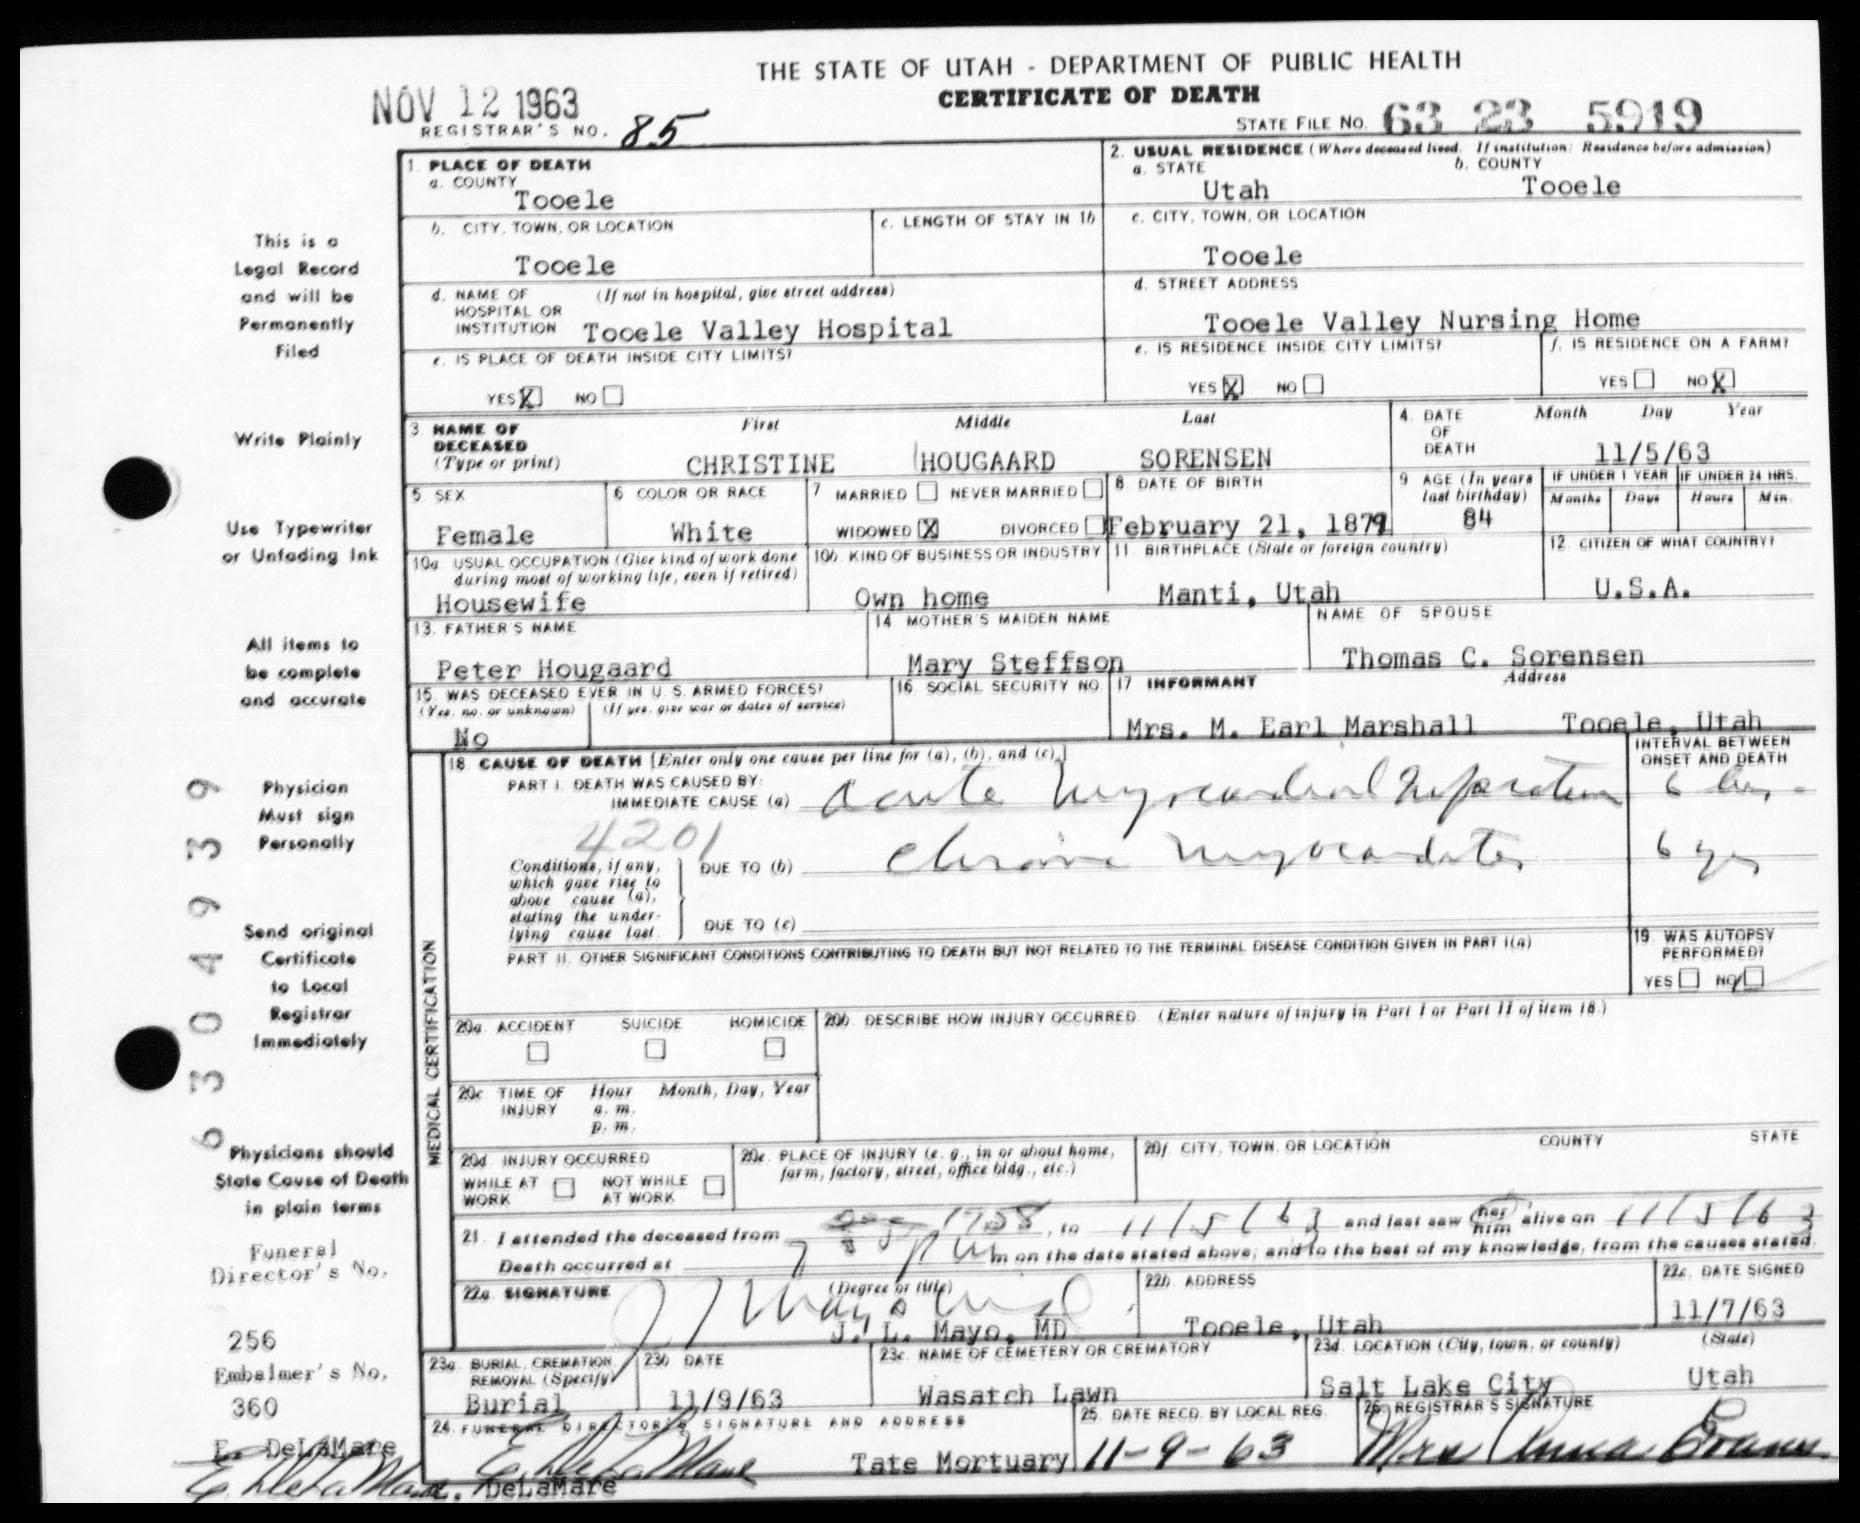 THE STATE OF UTAH - DEPARTMENT OF PUBLIC HEALTH
CERTIFICATE OF DEATH
NOV 12 1963
REGISTRAR'S NO. 85
STATE FILE NO. 63 23 5919
This is a
Legal Record
and will be
Permanently
Filed
Write Plainly
Use Typewriter
or Unfading Ink
All items to
be complete
and accurate
Physician
Must sign
Personally
Send original
Certificate
to Local
Registrar
Immediately
Physicians should
State Cause of Death
in plain terms
Funeral
Director's No.
256
Embalmer's No.
360
E. DeLaMare
E. DeLaMare
6 3 0 4 9 3 3 9
1. PLACE OF DEATH
a. COUNTY
Tooele
b. CITY, TOWN, OR LOCATION
Tooele
c. LENGTH OF STAY IN 1b
d. NAME OF HOSPITAL OR INSTITUTION (If not in hospital, give street address)
Tooele Valley Hospital
e. IS PLACE OF DEATH INSIDE CITY LIMITS?
YES X NO
2. USUAL RESIDENCE (Where deceased lived. If institution: Residence before admission)
a. STATE
Utah
b. COUNTY
Tooele
c. CITY, TOWN, OR LOCATION
Tooele
d. STREET ADDRESS
Tooele Valley Nursing Home
e. IS RESIDENCE INSIDE CITY LIMITS?
YES X NO
f. IS RESIDENCE ON A FARM?
YES NO X
3. NAME OF DECEASED (Type or print)
First Middle Last
CHRISTINE HOUGAARD SORENSEN
4. DATE OF DEATH Month Day Year
11/5/63
5. SEX
Female
6. COLOR OR RACE
White
7. MARRIED NEVER MARRIED
WIDOWED X DIVORCED
8. DATE OF BIRTH
February 21, 1879
9. AGE (In years last birthday)
84
IF UNDER 1 YEAR
Months Days
IF UNDER 24 HRS.
Hours Min.
10a. USUAL OCCUPATION (Give kind of work done during most of working life, even if retired)
Housewife
10b. KIND OF BUSINESS OR INDUSTRY
Own home
11. BIRTHPLACE (State or foreign country)
Manti, Utah
12. CITIZEN OF WHAT COUNTRY?
U.S.A.
13. FATHER'S NAME
Peter Hougaard
14. MOTHER'S MAIDEN NAME
Mary Steffson
NAME OF SPOUSE
Thomas C. Sorensen
15. WAS DECEASED EVER IN U. S. ARMED FORCES?
(Yes, no, or unknown) (If yes, give war or dates of service)
No
16. SOCIAL SECURITY NO.
17. INFORMANT Address
Mrs. M. Earl Marshall Tooele, Utah
MEDICAL CERTIFICATION
18. CAUSE OF DEATH [Enter only one cause per line for (a), (b), and (c).]
INTERVAL BETWEEN ONSET AND DEATH
PART I. DEATH WAS CAUSED BY:
IMMEDIATE CAUSE (a) Acute Myocardial Infarction 6 hrs.
4201
Conditions, if any, which gave rise to above cause (a), stating the underlying cause last.
DUE TO (b) Chronic Myocarditis 6 yrs
DUE TO (c)
PART II. OTHER SIGNIFICANT CONDITIONS CONTRIBUTING TO DEATH BUT NOT RELATED TO THE TERMINAL DISEASE CONDITION GIVEN IN PART I(a)
19. WAS AUTOPSY PERFORMED?
YES NO
20a. ACCIDENT SUICIDE HOMICIDE
20b. DESCRIBE HOW INJURY OCCURRED. (Enter nature of injury in Part I or Part II of item 18.)
20c. TIME OF INJURY Hour Month, Day, Year
a. m.
p. m.
20d. INJURY OCCURRED
WHILE AT WORK NOT WHILE AT WORK
20e. PLACE OF INJURY (e. g., in or about home, farm, factory, street, office bldg., etc.)
20f. CITY, TOWN, OR LOCATION COUNTY STATE
21. I attended the deceased from 1958, to 11/5/63 and last saw her him alive on 11/5/63
Death occurred at m on the date stated above; and to the best of my knowledge, from the causes stated.
22a. SIGNATURE (Degree or title)
J L Mayo MD
J. L. Mayo, MD
22b. ADDRESS
Tooele, Utah
22c. DATE SIGNED
11/7/63
23a. BURIAL, CREMATION, REMOVAL (Specify)
Burial
23b. DATE
11/9/63
23c. NAME OF CEMETERY OR CREMATORY
Wasatch Lawn
23d. LOCATION (City, town, or county) (State)
Salt Lake City Utah
24. FUNERAL DIRECTOR'S SIGNATURE AND ADDRESS
E. DeLaMare Tate Mortuary
E. DeLaMare
25. DATE RECD. BY LOCAL REG.
11-9-63
26. REGISTRAR'S SIGNATURE
Mrs Anna Evans